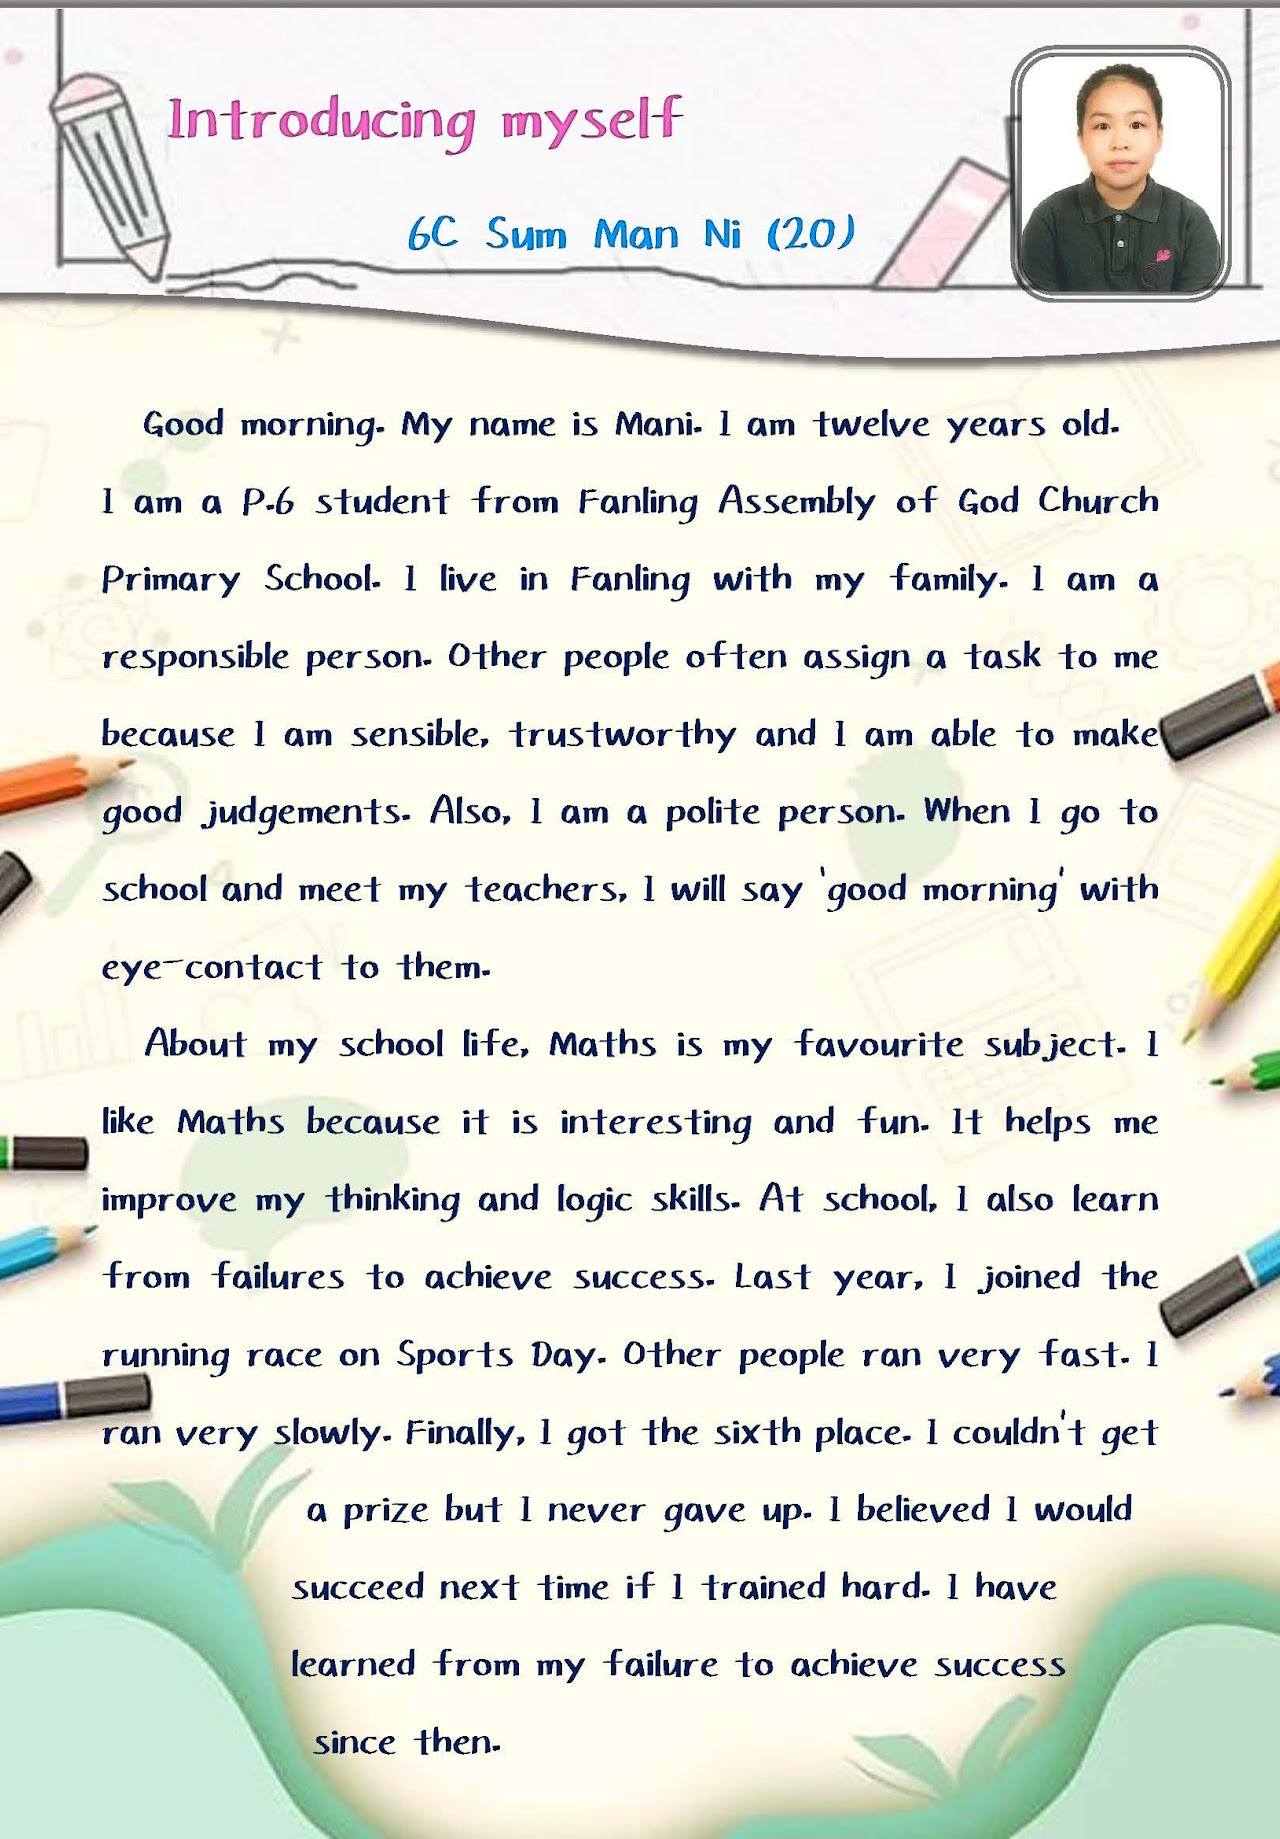 Introducing myself
6C Sum Man Ni (20)
Good morning. My name is Mani. I am twelve years old.
I am a P.6 student from Fanling Assembly of God Church
Primary School. I live in Fanling with my family. I am a
responsible person. Other people often assign a task to me
because I am sensible, trustworthy and I am able to make
good judgements. Also, I am a polite person. When I go to
school and meet my teachers, I will say 'good morning' with
eye-contact to them.
About my school life, Maths is my favourite subject. I
like Maths because it is interesting and fun. It helps me
improve my thinking and logic skills. At school, I also learn
from failures to achieve success. Last year, I joined the
running race on Sports Day. Other people ran very fast. I
ran very slowly. Finally, I got the sixth place. I couldn't get
a prize but I never gave up. I believed I would
succeed next time if I trained hard. I have
learned from my failure to achieve success
since then.